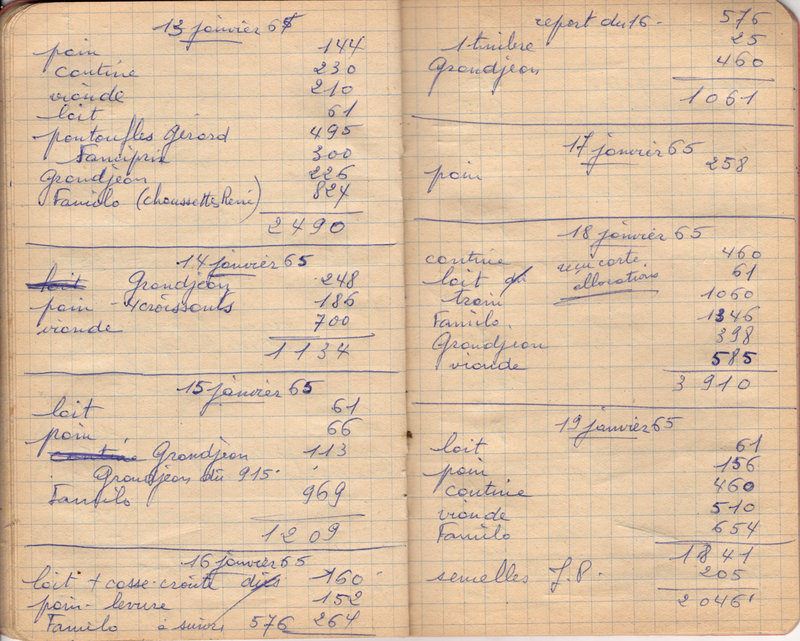 13 janvier 65
pain 144
cantine 230
viande 210
lait 61
pantoufles Gérard 495
Fanciprix 300
Grandjean 226
Familo (chaussettes René) 824
2490
14 janvier 65
lait Grandjean 248
pain - 4 croissants 186
viande 700
1134
15 janvier 65
lait 61
pain 66
cantine Grandjean 113
Grandjean dû 915
Familo 969
1209
16 janvier 65
lait + casse-croûte 160
pain - levure 152
Familo à suivre 576 264
report du 16 - 576
1 timbre 25
Grandjean 460
1061
17 janvier 65
pain 258
18 janvier 65
cantine 460
reçu carte
lait 61
allocations
train 1060
Familo 1346
Grandjean 398
viande 585
3910
19 janvier 65
lait 61
pain 156
cantine 460
viande 510
Familo 654
1841
semelles J.P. 205
2046